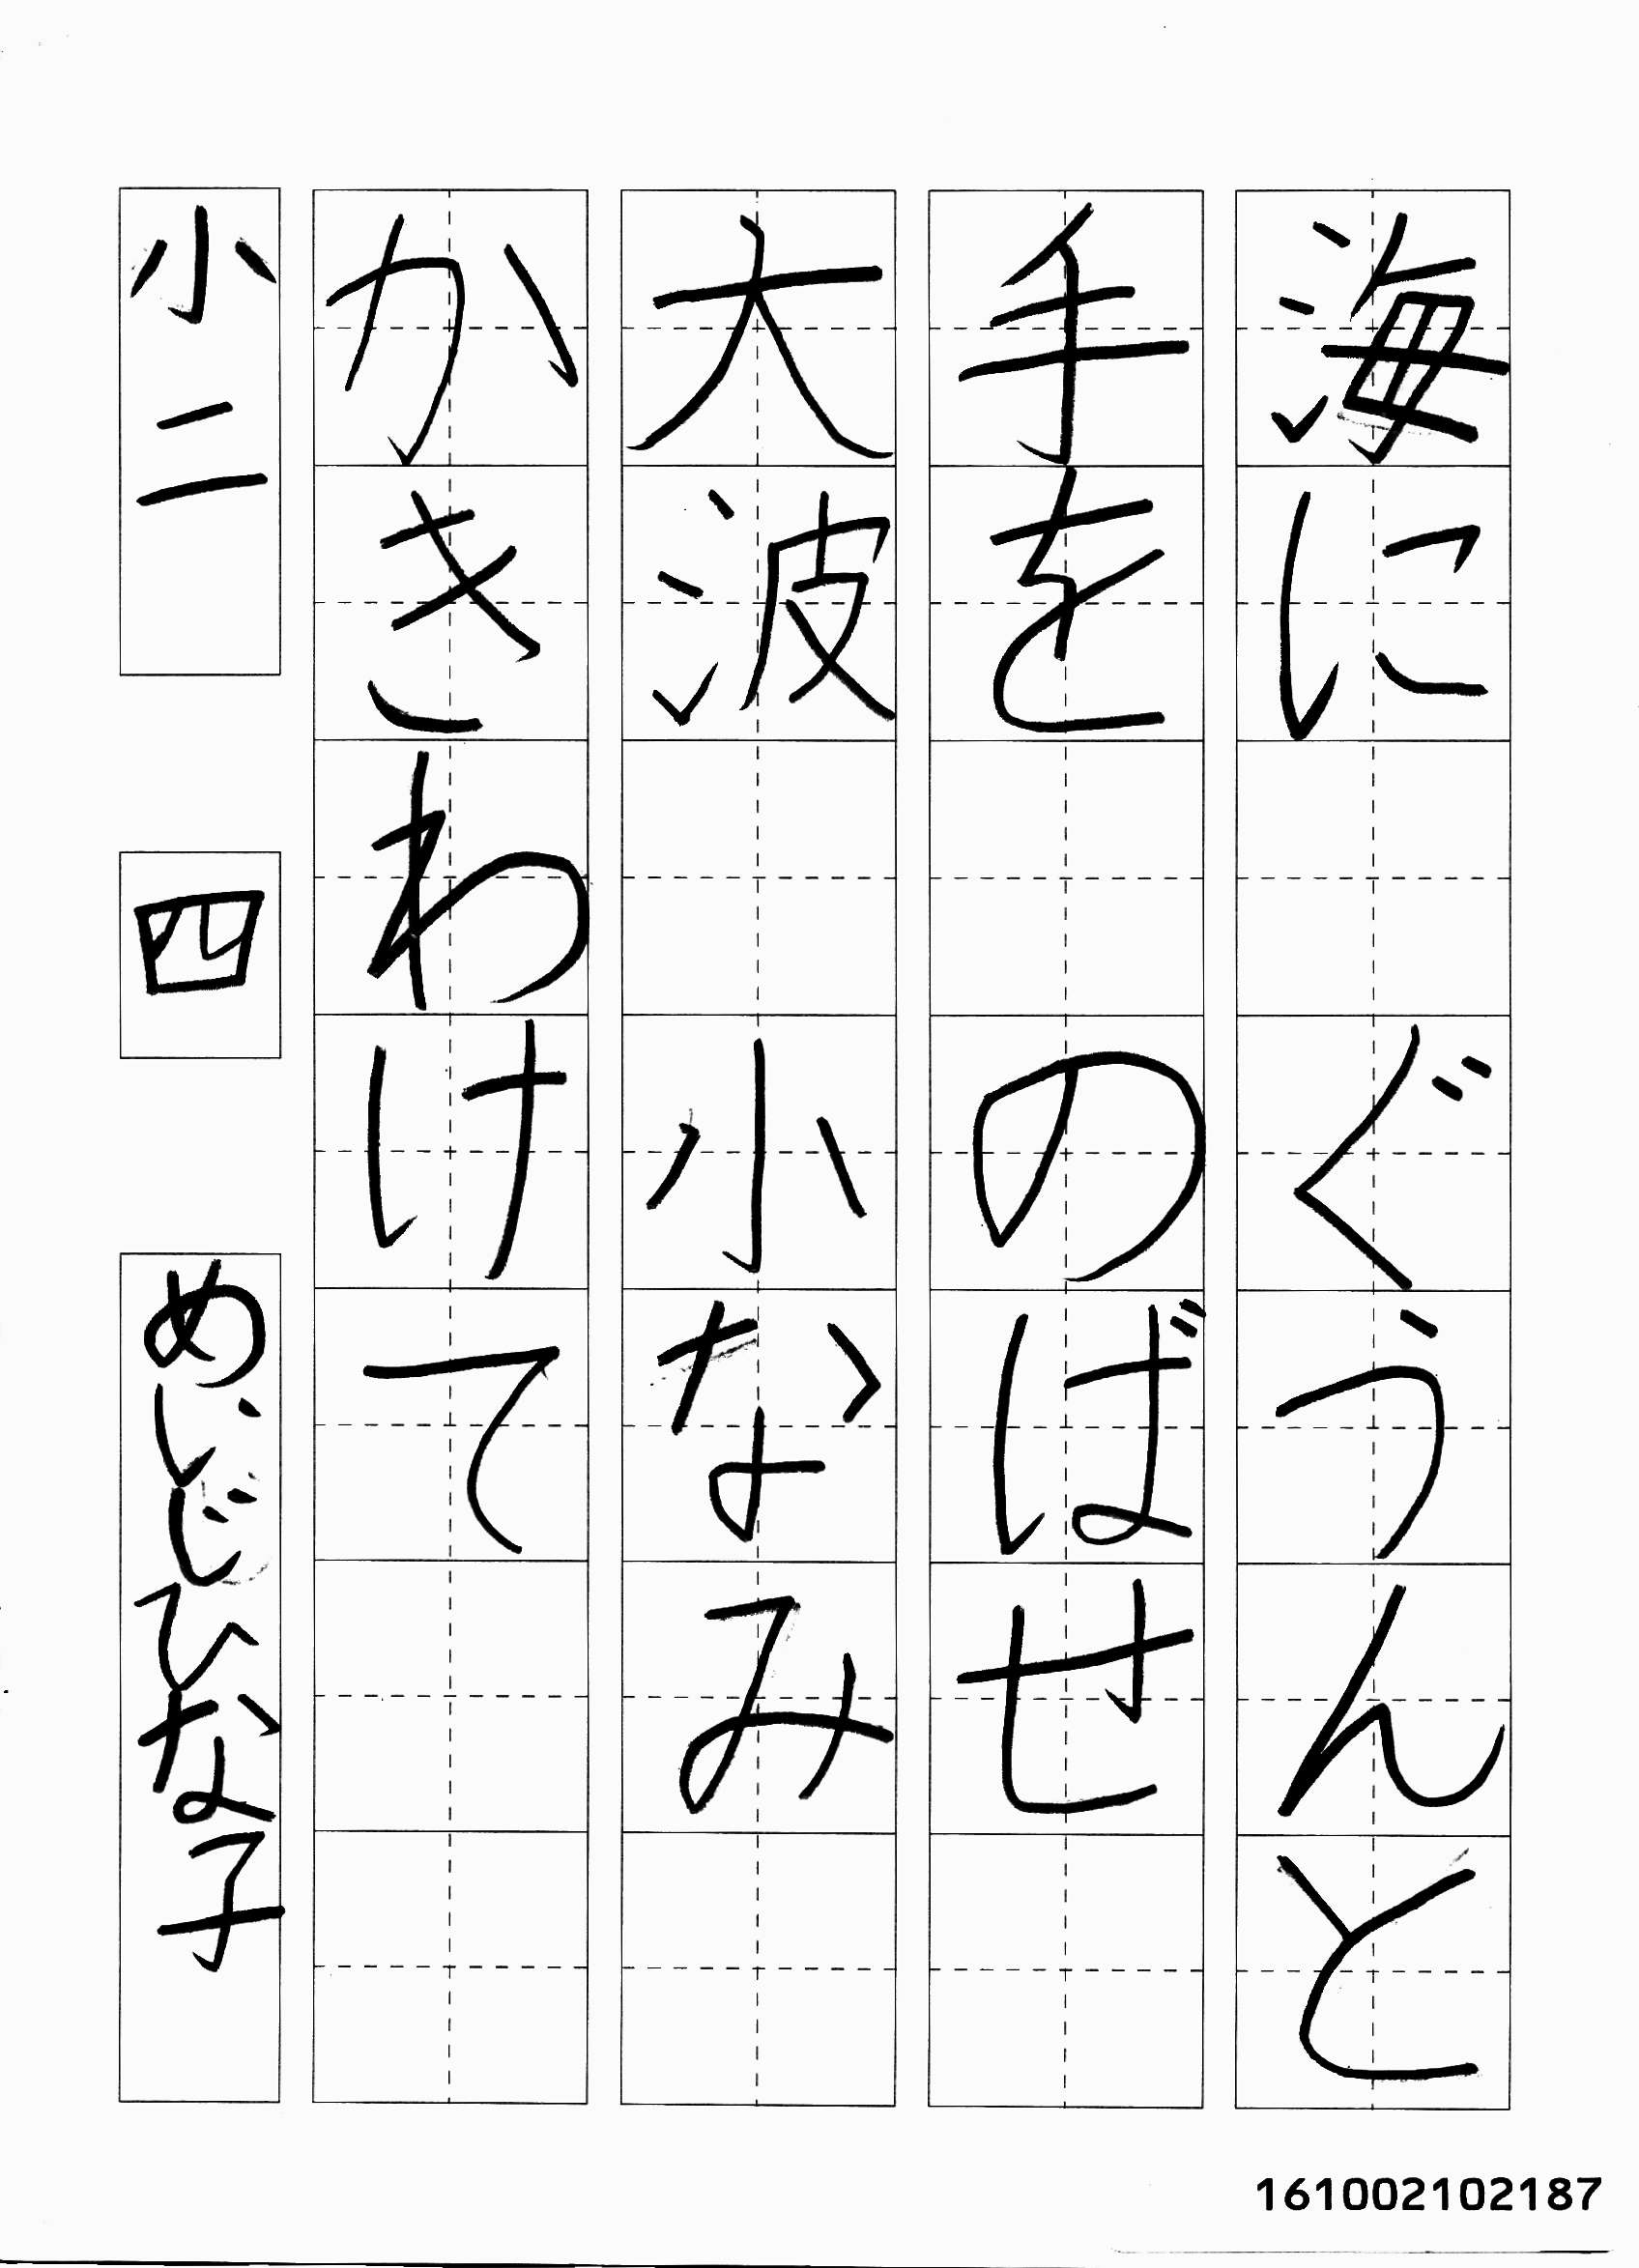 海に ぐうんと
手を のばせ
大波 小なみ
かきわけて
小二 四 めいじひな子
161002102187